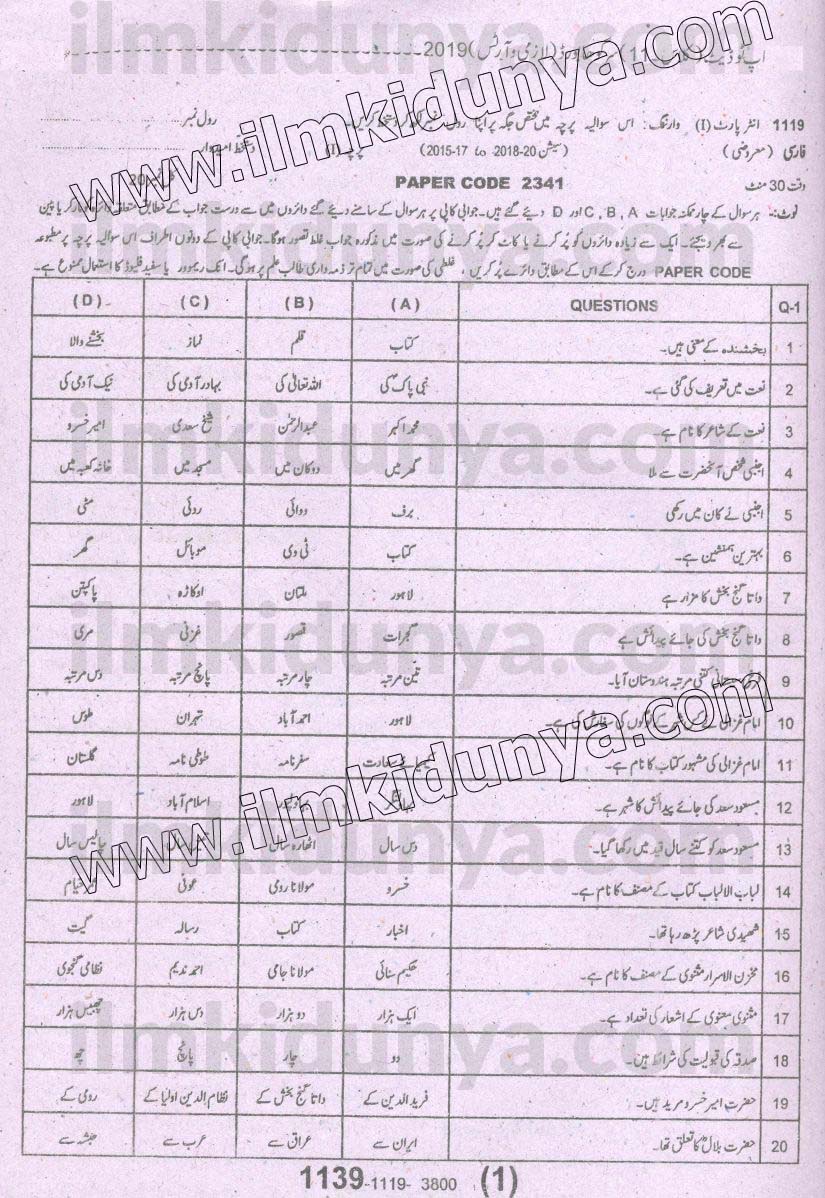 www.ilmkidunya.com
ilmkidunya.com
2019 (لازمی و آرٹس)
1119 انٹر پارٹ (I) وارننگ: اس سوالیہ پرچہ میں مختص جگہ پر اپنا رول نمبر لکھ کر دستخط کریں۔ رول نمبر
فارسی (معروضی) (سیشن 2015-17 to 2018-20) پرچہ (I) دستخط امیدوار
وقت 30 منٹ PAPER CODE 2341 20
نوٹ:۔ ہر سوال کے چار ممکنہ جوابات A , B , C اور D دیئے گئے ہیں۔ جوابی کاپی پر ہر سوال کے سامنے دیئے گئے دائروں میں سے درست جواب کے مطابق متعلقہ دائرہ کو مارکر یا پین
سے بھر دیجئے۔ ایک سے زیادہ دائروں کو پُر کرنے یا کاٹ کر پُر کرنے کی صورت میں مذکورہ جواب غلط تصور ہوگا۔ جوابی کاپی کے دونوں اطراف اس سوالیہ پرچہ پر مطبوعہ
PAPER CODE درج کر کے اس کے مطابق دائرے پُر کریں ، غلطی کی صورت میں تمام تر ذمہ داری طالب علم پر ہوگی۔ انک ریموور یا سفید فلیوڈ کا استعمال ممنوع ہے۔
Q-1 QUESTIONS (A) (B) (C) (D)
1 بخشندہ کے معنی ہیں۔ کتاب قلم نماز بخشنے والا
2 نعت میں تعریف کی گئی ہے۔ نبی پاکؐ کی اللہ تعالیٰ کی بہادر آدمی کی نیک آدمی کی
3 نعت کے شاعر کا نام ہے۔ محمد اکبر عبدالرحمٰن شیخ سعدی امیر خسرو
4 اجنبی شخص آنحضرت سے ملا گھر میں دوکان میں مسجد میں خانہ کعبہ میں
5 اجنبی نے کان میں رکھی برف دوائی روئی مٹی
6 بہترین ہمنشین ہے۔ کتاب ٹی وی موبائل گھر
7 داتا گنج بخش کا مزار ہے لاہور ملتان اوکاڑہ پاکپتن
8 داتا گنج بخش کی جائے پیدائش ہے گجرات قصور غزنی مری
9 کتنی مرتبہ ہندوستان آیا۔ تین مرتبہ چار مرتبہ پانچ مرتبہ دس مرتبہ
10 امام غزالی نے کے لوگوں کی سفارش کی ہے۔ لاہور احمد آباد تہران طوس
11 امام غزالی کی مشہور کتاب کا نام ہے۔ کیمیائے سعادت سفر نامہ طوطی نامہ گلستان
12 مسعود سعد کی جائے پیدائش کا شہر ہے۔ اسلام آباد لاہور
13 مسعود سعد کو کتنے سال قید میں رکھا گیا۔ دس سال اٹھارہ سال چالیس سال
14 لباب الالباب کتاب کے مصنف کا نام ہے۔ خسرو مولانا رومی عوفی خیام
15 شھیدی شاعر پڑھ رہا تھا۔ اخبار کتاب رسالہ گیت
16 مخزن الاسرار مثنوی کے مصنف کا نام ہے۔ حکیم سنائی مولانا جامی احمد ندیم نظامی گنجوی
17 مثنوی معنوی کے اشعار کی تعداد ہے۔ ایک ہزار دو ہزار دس ہزار چھبیس ہزار
18 صدقہ کی قبولیت کی شرائط ہیں۔ دو چار پانچ چھ
19 حضرت امیر خسرو مرید ہیں۔ فرید الدین کے داتا گنج بخش کے نظام الدین اولیا کے رومی کے
20 حضرت بلالؓ کا تعلق تھا۔ ایران سے عراق سے عرب سے حبشہ سے
1139-1119- 3800 (1)